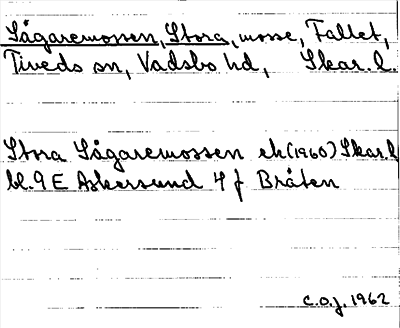 Sågaremossen, Stora, mosse, Fallet,
Tiveds sn, Vadsbo hd, Skar. l.
Stora Sågaremossen ek (1960) Skar. l
bl. 9 E Askersund 4 f Bråten
C.O.J. 1962